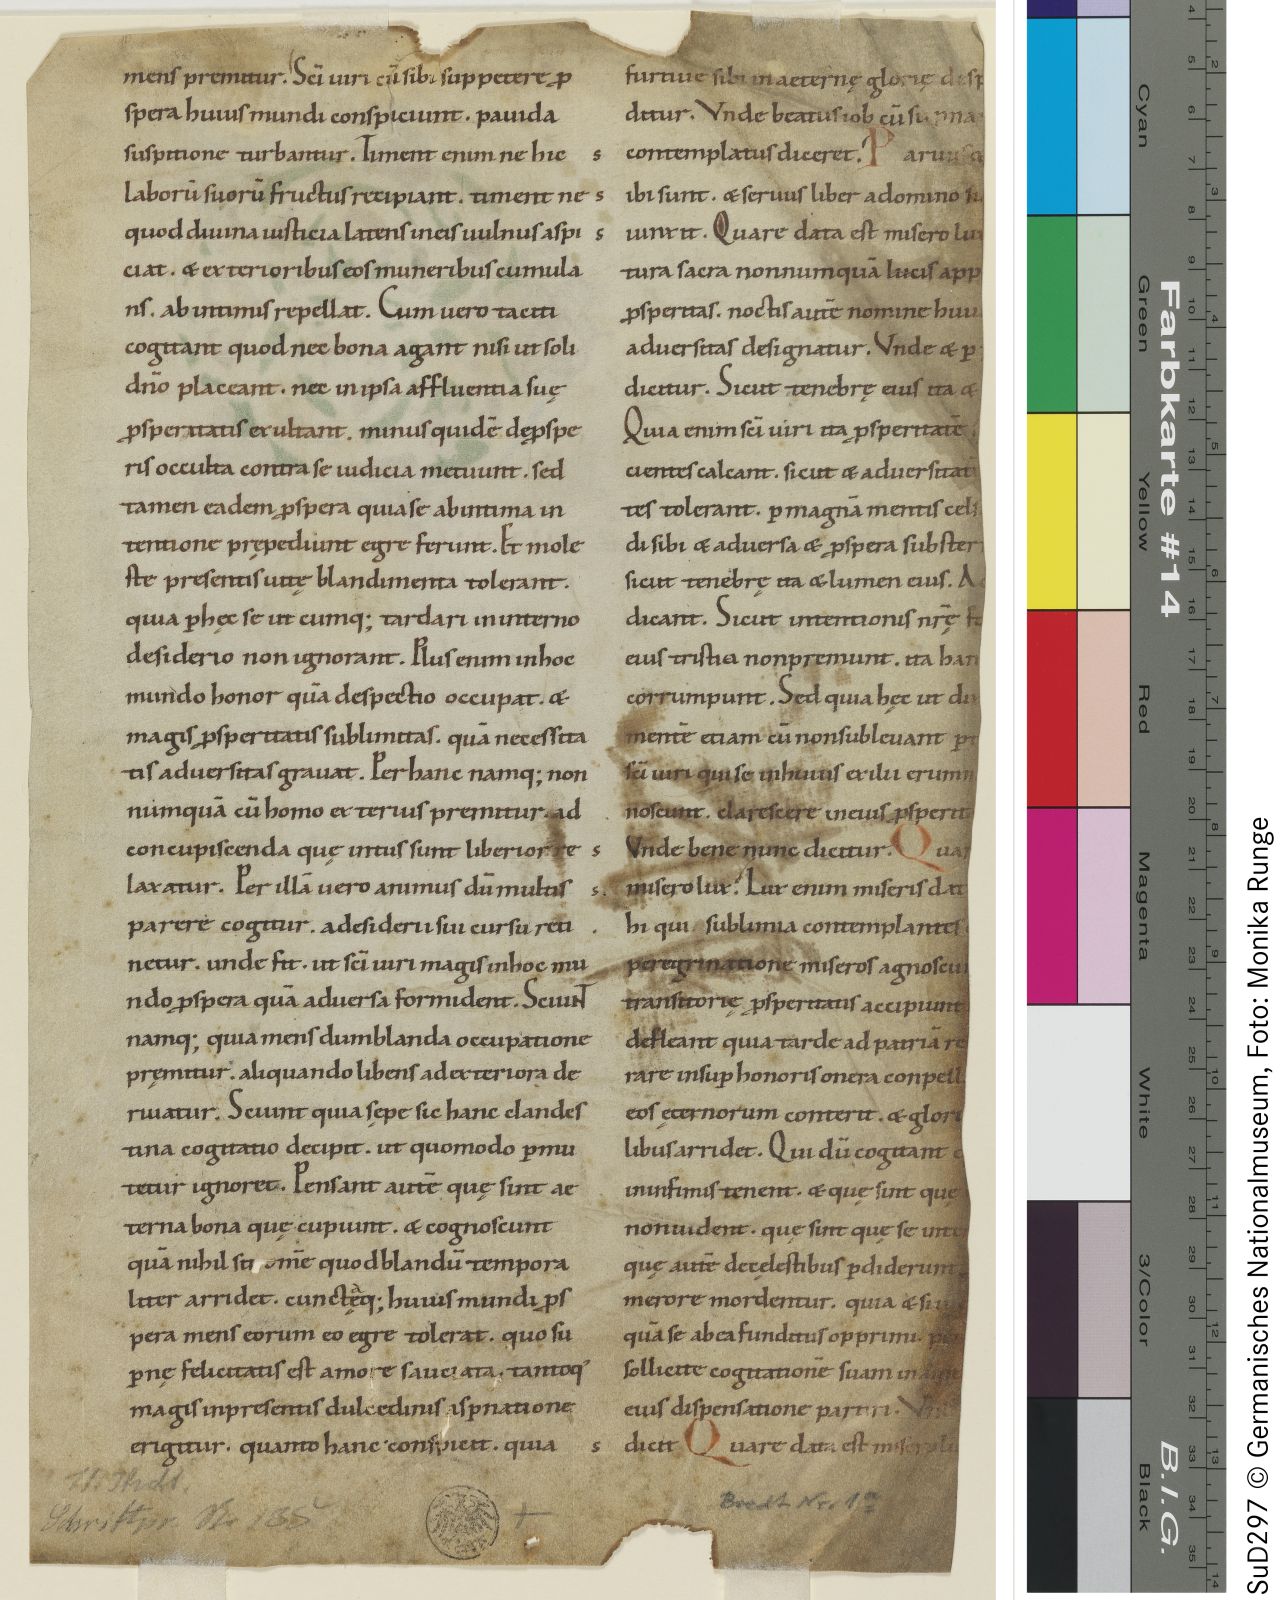 mens premitur. Sc̄i uiri cū sibi suppetere ꝓ
spera huius mundi conspiciunt. pauida
suspitione turbantur. Timent enim ne hic
laborū suorū fructus recipiant. timent ne
quod diuina iusticia latens in eis uulnus aspi
ciat. & exterioribus eos muneribus cumula
ns. ab intimis repellat. Cum uero taciti
cogitant quod nec bona agant nisi ut soli
dn̄o placeant. nec in ipsa affluentia suę
ꝓsperitatis exultant. minus quidē de ꝓspe
ris occulta contra se iudicia metuunt. sed
tamen eadem ꝓspera quia se ab intima in
tentione prępediunt egre ferunt. Et mole
ste presentis uitę blandimenta tolerant.
quia ꝑ hęc se ut cumq; tardari in interno
desiderio non ignorant. Plus enim in hoc
mundo honor quā despectio occupat. &
magis ꝓsperitatis sublimitas. quā necessita
tis aduersitas grauat. Per hanc namq; non
numquā cū homo exterius premitur. ad
concupiscenda quę intus sunt liberior re
laxatur. Per illā uero animus dū multis
parere cogitur. a desiderii sui cursu reti
netur. unde fit. ut sc̄i uiri magis in hoc mu
ndo ꝓspera quā aduersa formident. Sciunt
namq; quia mens dum blanda occupatione
pręmitur. aliquando libens ad exteriora de
riuatur. Sciunt quia sępe sic hanc clandes
tina cogitatio decipit. ut quomodo ꝑmu
tetur ignoret. Pensant autē quę sint ae
terna bona quę cupiunt. & cognoscunt
quā nihil sit om̄e quod blandū tempora
liter arridet. cunctaq; huius mundi ꝓs
pera mens eorum eo egre tolerat. quo su
ꝑnę felicitatis est amore sauciata. tantoq
magis in presentis dulcedinis aspnatione
erigitur. quanto hanc conspicit. quia
furtiue sibi in aeternę glorię
ditur. Vnde beatus iob cū
s contemplatus diceret. P
s ibi sunt. & seruus liber a domino
s iunxit. Quare data est misero
tura sacra nonnumquā lucis
ꝓsperitas. noctis autē nomine
aduersitas designatur. Vnde &
dicitur. Sicut tenebrę eius ita &
Quia enim sc̄i uiri ita ꝓsperitatē
cientes calcant. sicut &
tes tolerant. ꝑ magnā mentis
di sibi & aduersa & ꝓspera
sicut tenebrę ita & lumen eius.
dicant. Sicut intentionis nr̄ę
eius tristia non premunt. ita
corrumpunt. Sed quia hęc ut
mentē etiam cū non subleuant
sc̄i uiri qui se in huius exilii
noscunt. clarescere in eius
s Vnde bene nunc dicitur. Q
s. misero lux? Lux enim miseris
hi qui sublimia contemplantes
peregrinatione miseros
transitorię ꝓsperitatis accipiunt
defleant quia tarde ad patriā
rare insuꝑ honoris onera
eos ęternorum conterit. &
libus arridet. Qui dū cogitant
in infimis tenent. & quę sint
non uident. quę sint que se
quę autē de cęlestibus ꝑdiderunt
merore mordentur. quia &
quā se abea funditus opprimi.
sollicite cogitationē suam
eius dispensatione
s dicit Q uare data est
Schriftpr. N. 135
Bredt Nr. 1a
Farbkarte #14
B.I.G.
Cyan
Green
Yellow
Red
Magenta
White
3/Color
Black
SuD297 © Germanisches Nationalmuseum, Foto: Monika Runge